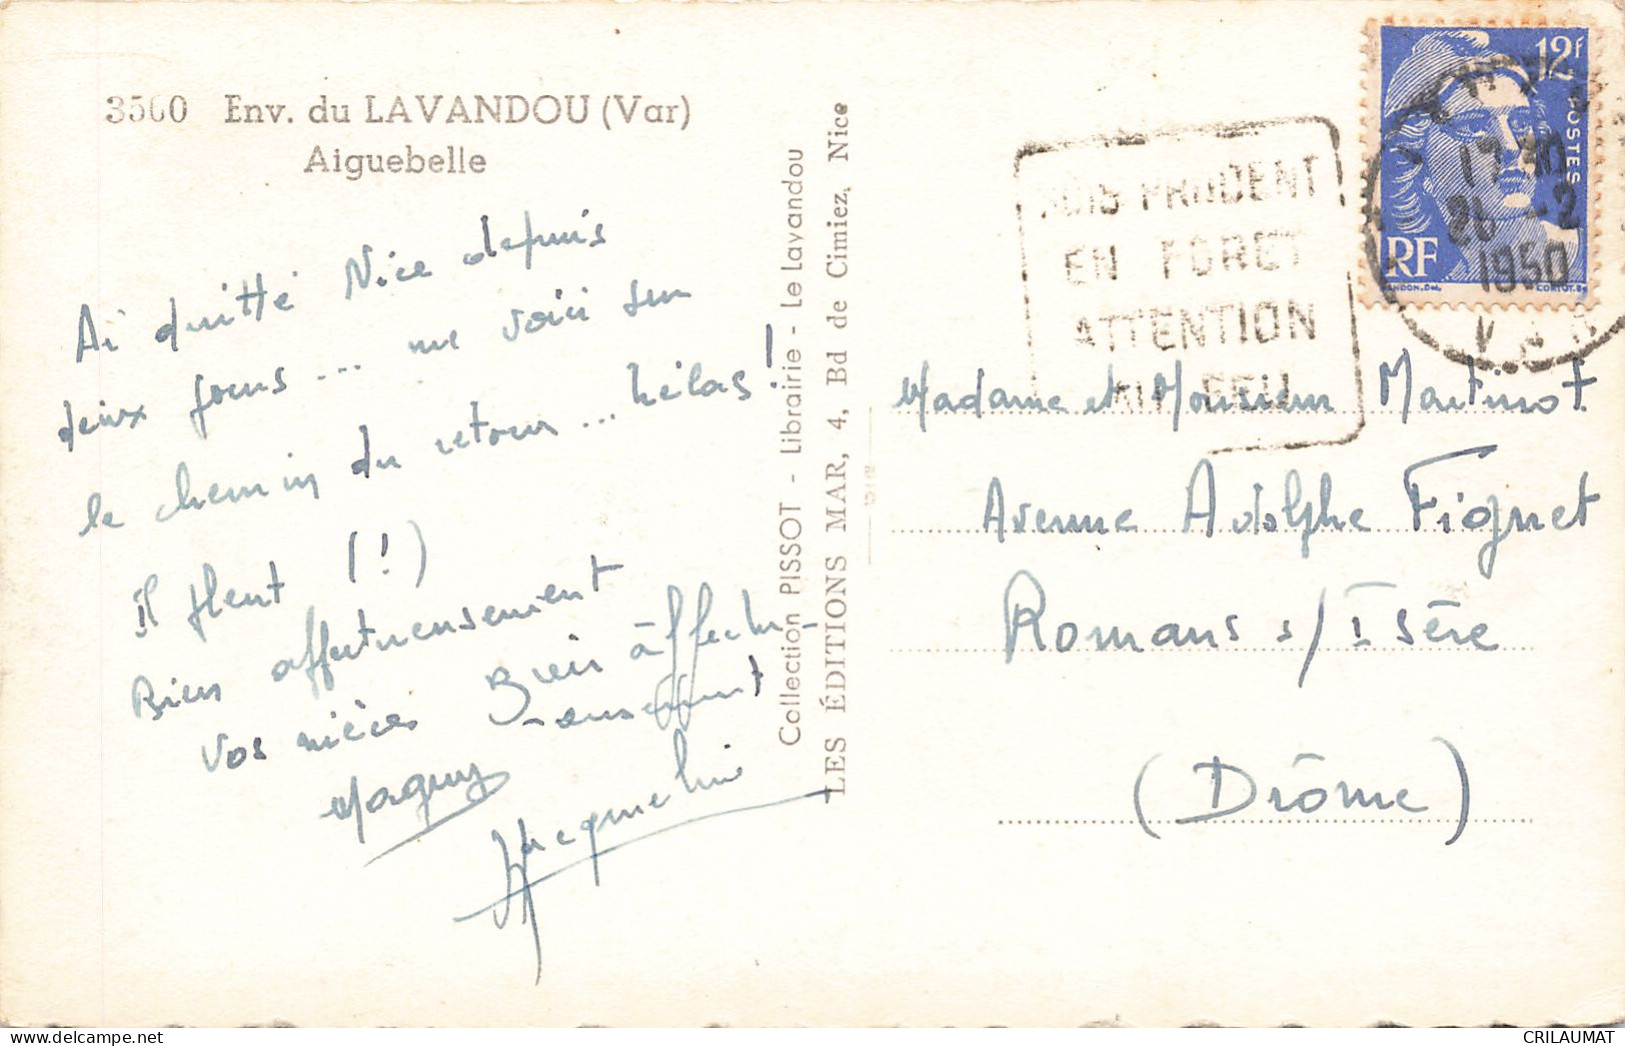 3560 Env. du LAVANDOU (Var)
Aiguebelle
Ai quitté Nice depuis
deux jours ... me voici sur
le chemin du retour ... hélas !
Il pleut (!)
Bien affectueusement
Vos nièces
Maguy
Bien affectu-
-eusement
Jacqueline
Collection PISSOT - Librairie - Le Lavandou
LES ÉDITIONS MAR, 4, Bd de Cimiez, Nice
SOIS PRUDENT
EN FORET
ATTENTION
AU FEU
12f
POSTES
RF
GANDON.Del.
CORTOT.Sc
17 30
26 -2
1950
VAR
Madame et Monsieur Martinot
Avenue Adolphe Figuet
Romans s/ Isère
(Drôme)
delcampe.net
CRILAUMAT